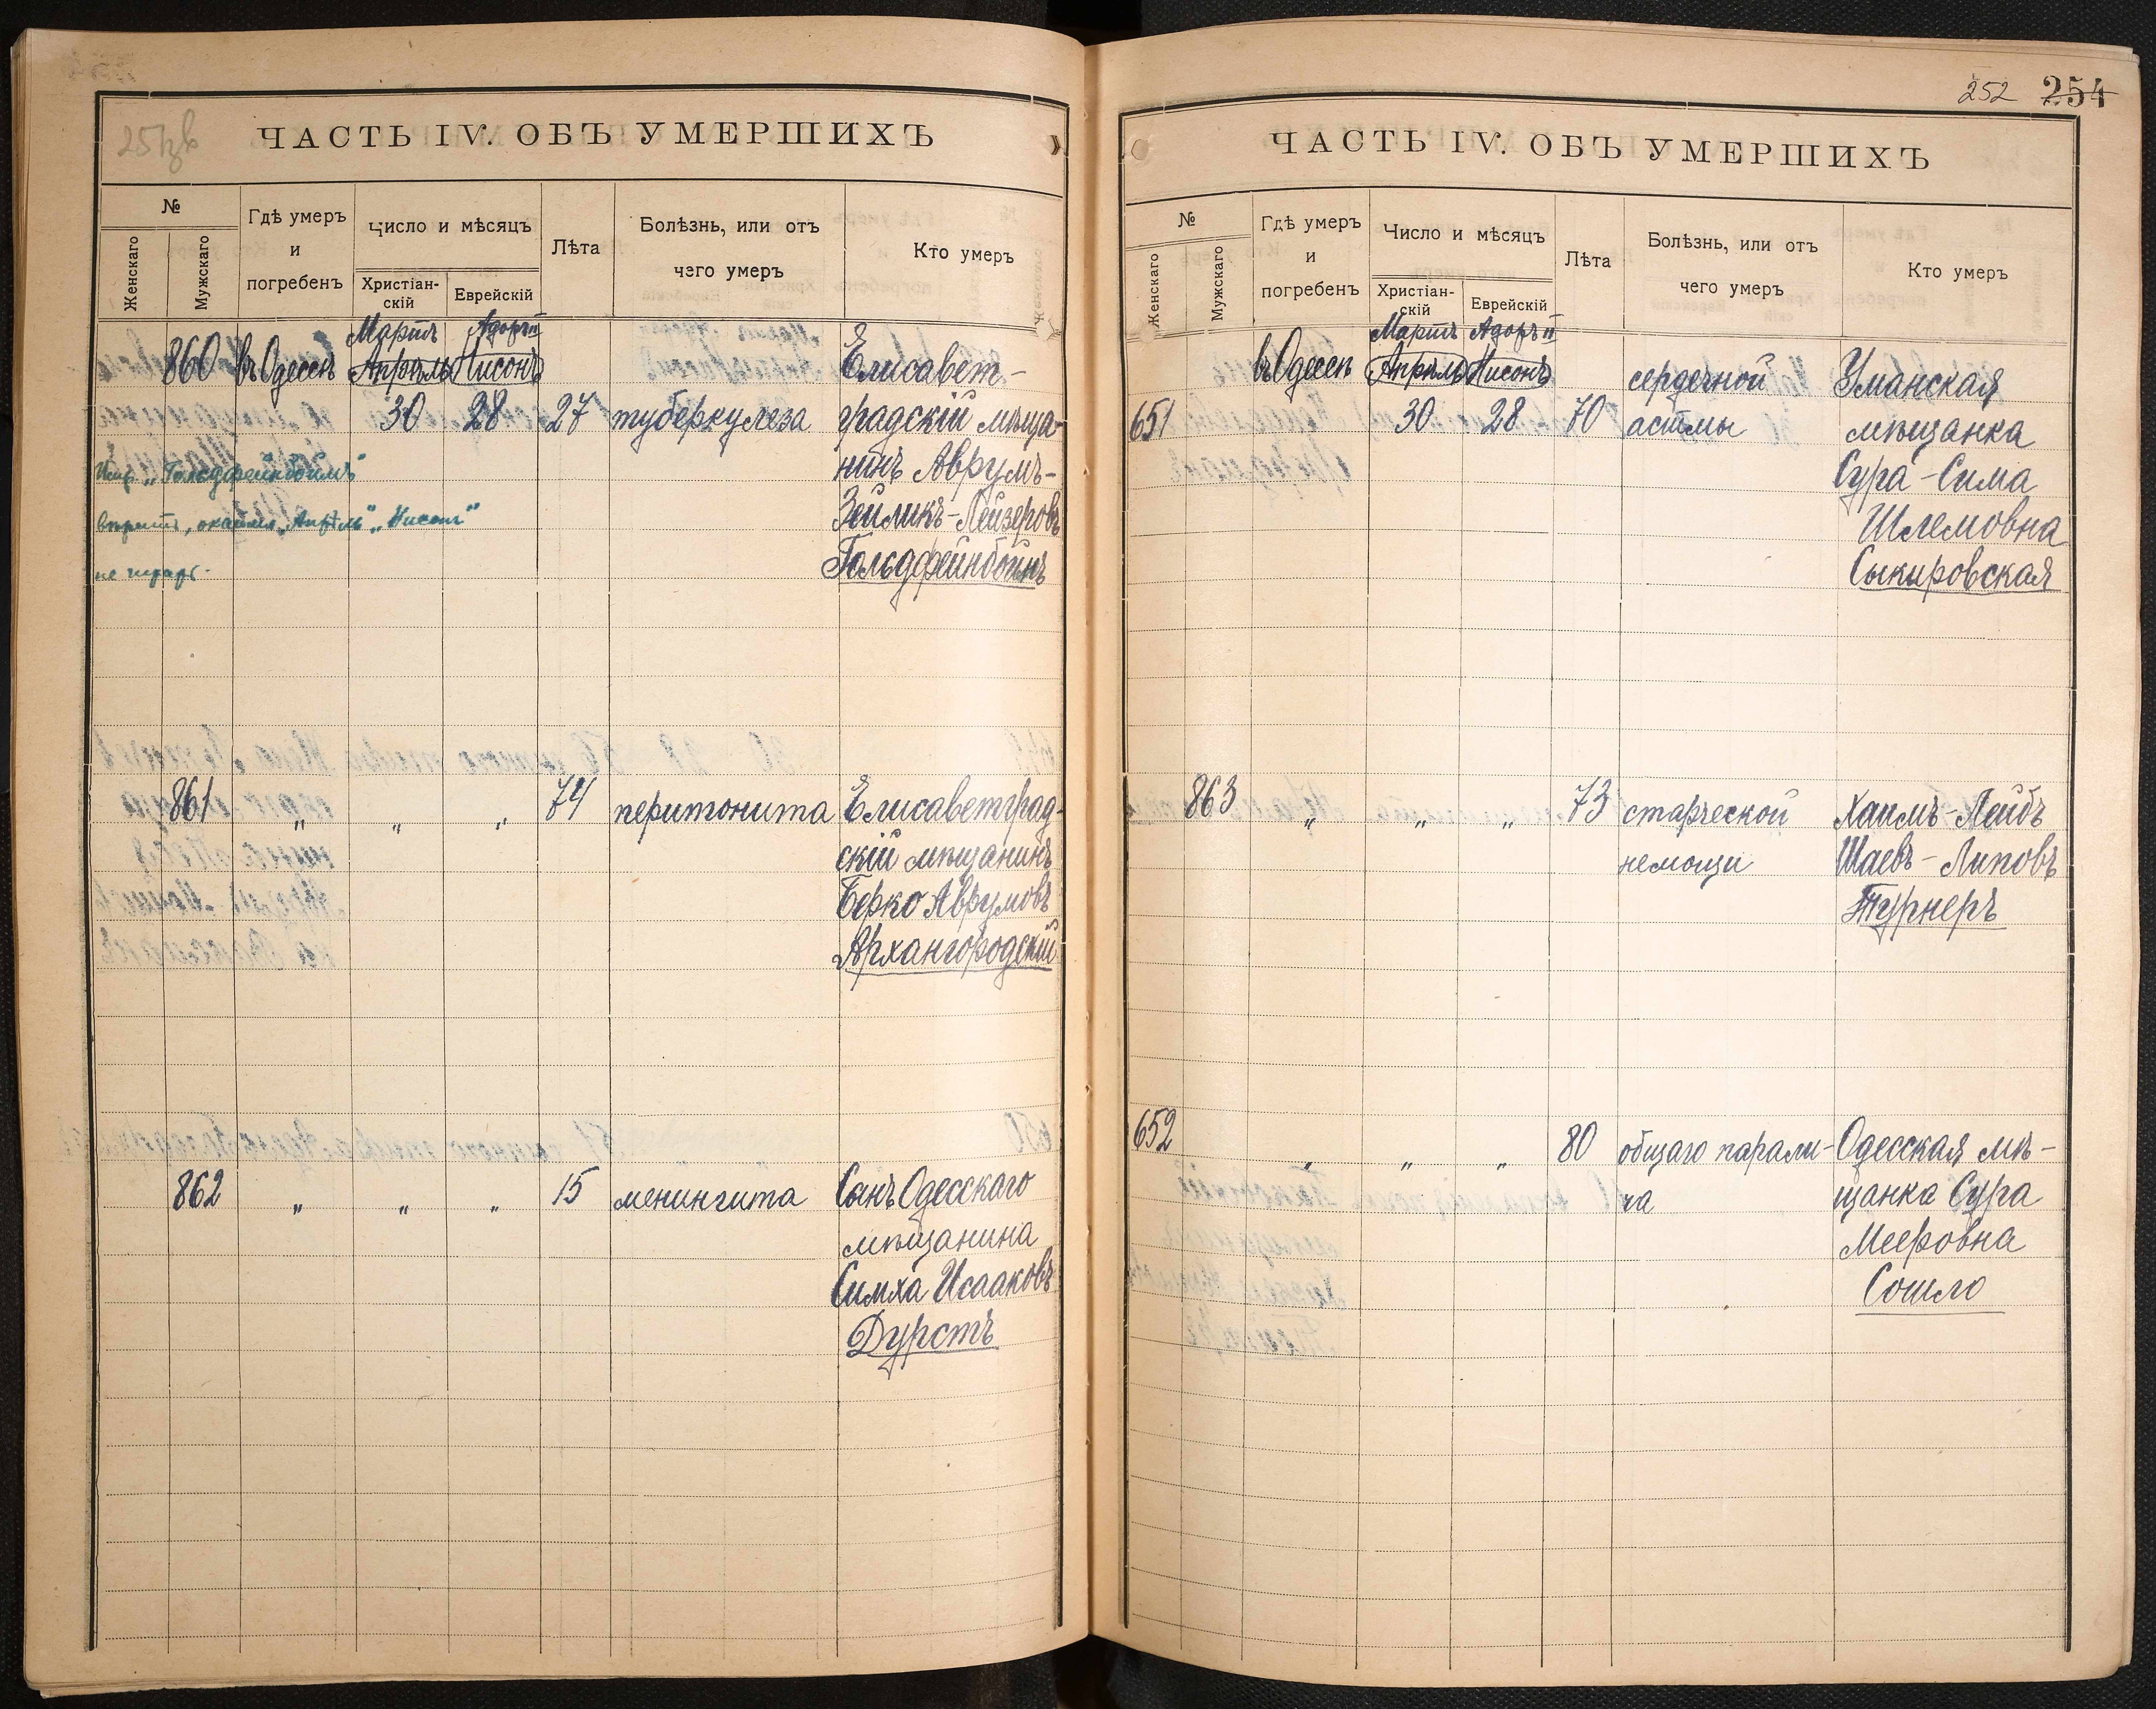 251зв
ЧАСТЬ IV. ОБЪ УМЕРШИХЪ
№
Женскаго
Мужскаго
Гдѣ умеръ
и
погребенъ
Число и мѣсяцъ
Христіан-
скій
Еврейскій
Лѣта
Болѣзнь, или отъ
чего умеръ
Кто умеръ
Мартъ Адоръ II
860 въ Одессѣ Апрѣль Нисонъ Елисавет-
30 28 27 туберкулеза градскій мѣща-
нинъ Аврумъ-
Зейликъ-Лейзеровъ
Гольдфейнбойнъ
Испр. „Гольдфейнбоймъ"
вѣрить, оказалъ „Апрѣль" „Нисонъ"
не
861 „ „ „ 74 перитонита Елисаветград-
скій мѣщанинъ
Берко Аврумовъ
Архангородскій
862 „ „ „ 15 менингита Сынъ Одесскаго
мѣщанина
Симха Исааковъ
Дурстъ
252 254
ЧАСТЬ IV. ОБЪ УМЕРШИХЪ
№
Женскаго
Мужскаго
Гдѣ умеръ
и
погребенъ
Число и мѣсяцъ
Христіан-
скій
Еврейскій
Лѣта
Болѣзнь, или отъ
чего умеръ
Кто умеръ
Мартъ Адоръ II
въ Одессѣ Апрѣль Нисонъ сердечной Уманская
651 30 28 70 астмы мѣщанка
Сура-Сима
Шлемовна
Сыкировская
863 „ „ „ 73 старческой Хаимъ-Лейбъ
немощи Шаевъ-Липовъ
Турнеръ
652 „ „ „ 80 общаго парали- Одесская мѣ-
ча щанка Сура
Мееровна
Сошло